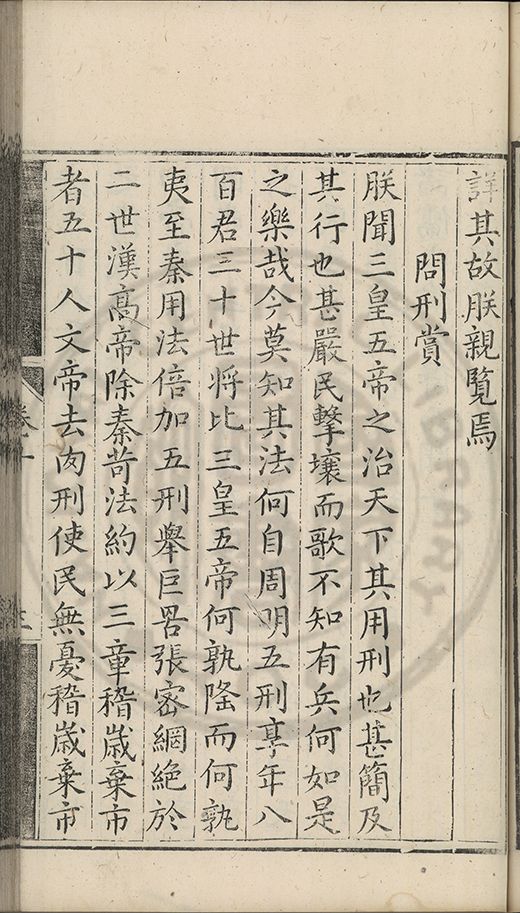 詳其故朕親覽焉
問刑賞
朕聞三皇五帝之治天下其用刑也甚簡及
其行也甚嚴民擊壤而歌不知有兵何如是
之樂哉今莫知其法何自周明五刑享年八
百君三十世将比三皇五帝何孰隆而何孰
夷至秦用法倍加五刑舉巨畧張密網絶於
二世漢高帝除秦苛法約以三章稽歲棄市
者五十人文帝去肉刑使民無憂稽歲棄市